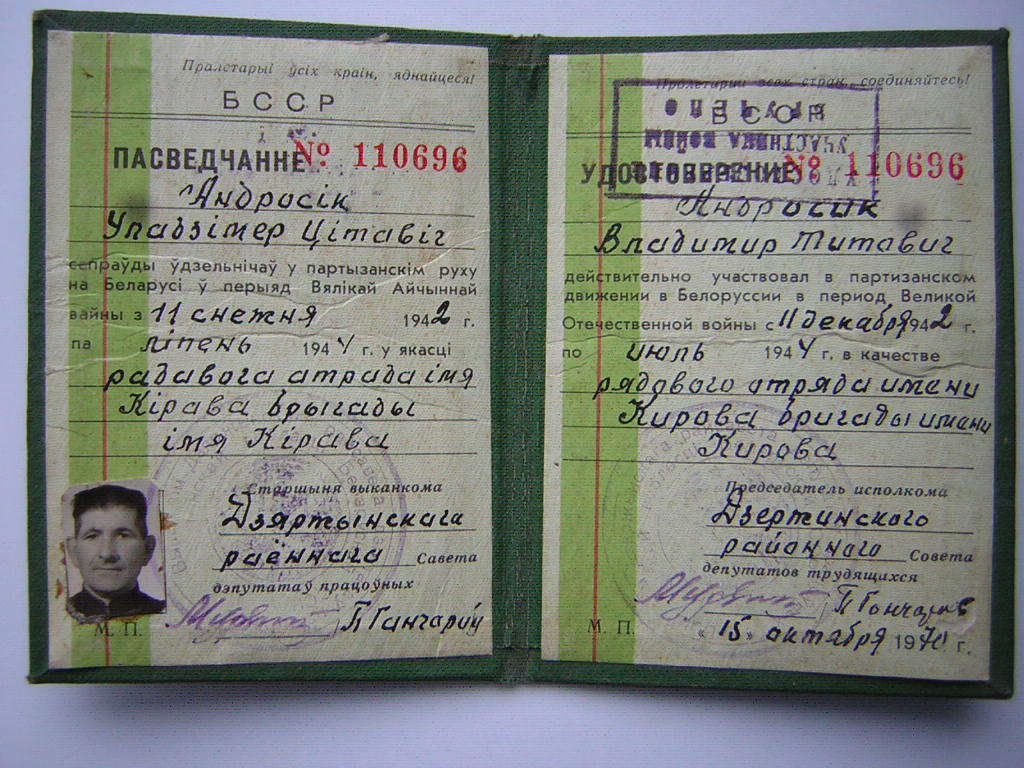 Пралетарыі ўсіх краін, яднайцеся!
БССР
ПАСВЕДЧАННЕ № 110696
Андросік
Уладзімер Цітавіч
сапраўды ўдзельнічаў у партызанскім руху
на Беларусі ў перыяд Вялікай Айчыннай
вайны з 11 снежня 1942 г.
па ліпень 1944 г. у якасці
радавога атрада імя
Кірава брыгады
імя Кірава
Старшыня выканкома
Дзяржынскага
раённага Савета
дэпутатаў працоўных
П Ганчароў
М. П.
Пролетарии всех стран, соединяйтесь!
БССР
УДОСТОВЕРЕНИЕ № 110696
Андросик
Владимир Титавич
действительно участвовал в партизанском
движении в Белоруссии в период Великой
Отечественной войны с 11 декабря 1942 г.
по июль 1944 г. в качестве
рядового отряда имени
Кирова бригады имени
Кирова
Председатель исполкома
Дзержинского
районного Совета
депутатов трудящихся
П Гончаров
М. П.
„15" октября 1970 г.